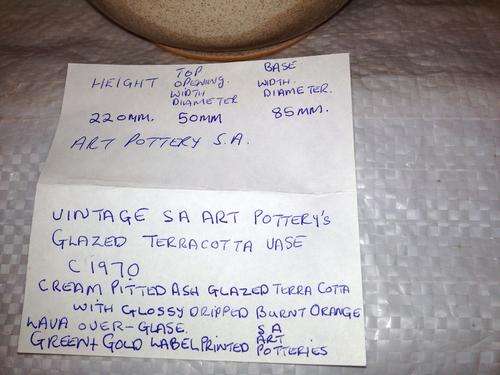 HEIGHT TOP OPENING. WIDTH DIAMETER BASE WIDTH. DIAMETER.
220MM. 50MM 85MM.
ART POTTERY S.A.
VINTAGE SA ART POTTERY'S
GLAZED TERRACOTTA VASE
C 1970
CREAM PITTED ASH GLAZED TERRA COTTA
WITH GLOSSY DRIPPED BURNT ORANGE
LAVA OVER-GLASE.
GREEN + GOLD LABEL PRINTED SA ART POTTERIES